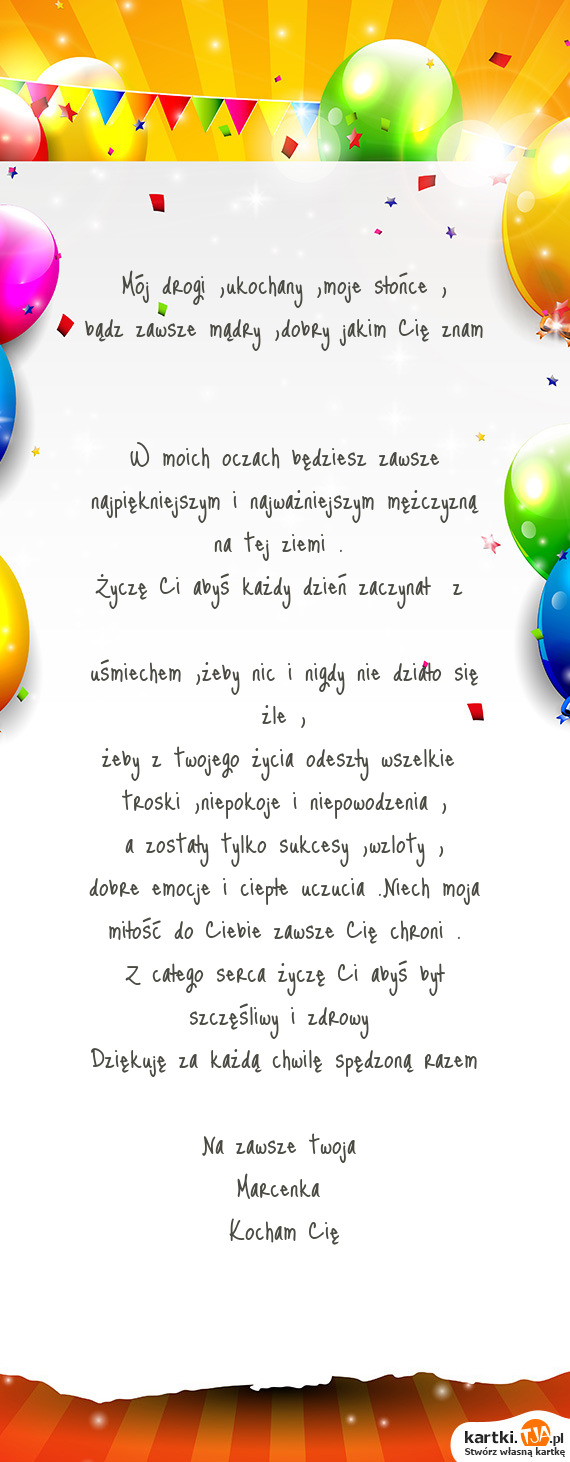 Mój drogi ,ukochany ,moje słońce ,
bądz zawsze mądry ,dobry jakim Cię znam
W moich oczach będziesz zawsze
najpiękniejszym i najważniejszym mężczyzną
na tej ziemi .
Życzę Ci abyś każdy dzień zaczynał z
uśmiechem ,żeby nic i nigdy nie działo się
żle ,
żeby z twojego życia odeszły wszelkie
troski ,niepokoje i niepowodzenia ,
a zostały tylko sukcesy ,wzloty ,
dobre emocje i ciepłe uczucia .Niech moja
miłość do Ciebie zawsze Cię chroni .
Z całego serca życzę Ci abyś był
szczęśliwy i zdrowy
Dziękuję za każdą chwilę spędzoną razem
Na zawsze twoja
Marcenka
Kocham Cię
kartki.TJA.pl
Stwórz własną kartkę